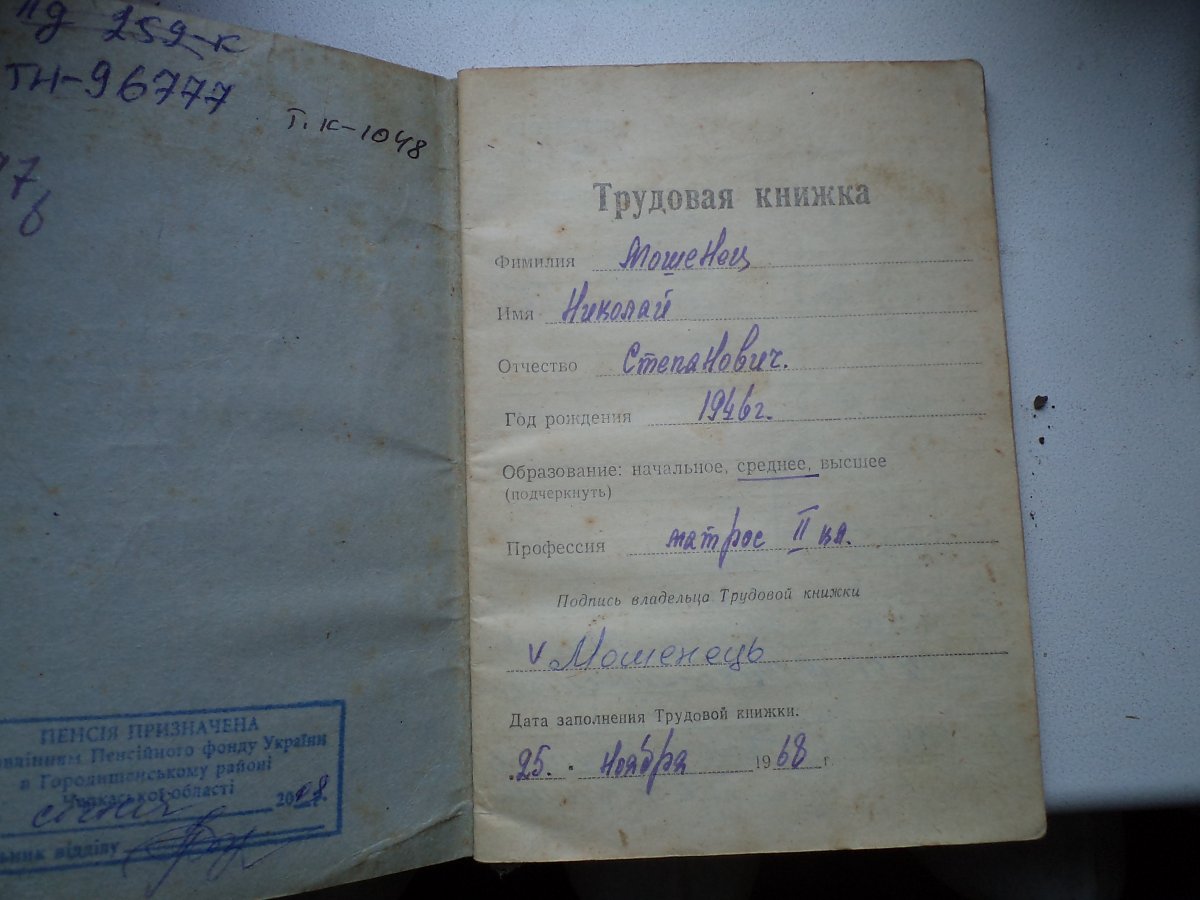 259-к
ТН-96777
Т.К-1048
ПЕНСІЯ ПРИЗНАЧЕНА
Пенсійного фонду України
в Городищенському районі
Черкаської області
січня 2018 г.
відділу
Трудовая книжка
Фимилия Мошенец
Имя Николай
Отчество Степанович.
Год рождения 1946г.
Образование: начальное, среднее, высшее
(подчеркнуть)
Профессия матрос II кл.
Подпись владельца Трудовой книжки
V Мошенець
Дата заполнения Трудовой книжки.
.25. Ноября 1968 г.